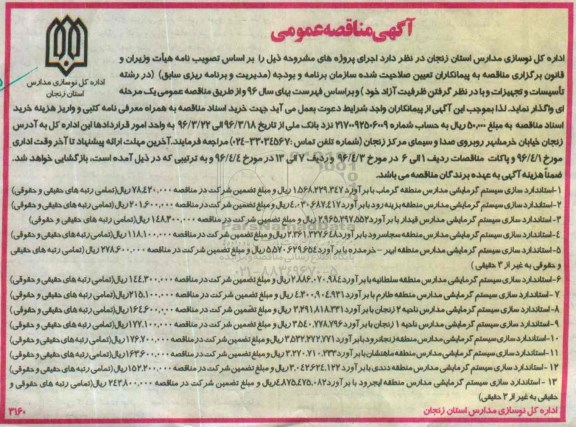 آگهی مناقصه عمومی
اداره کل نوسازی مدارس
استان زنجان
اداره کل نوسازی مدارس استان زنجان در نظر دارد اجرای پروژه های مشروحه ذیل را بر اساس تصویب نامه هیأت وزیران و
قانون برگزاری مناقصه به پیمانکاران تعیین صلاحیت شده سازمان برنامه و بودجه (مدیریت و برنامه ریزی سابق) (در رشته
تأسیسات و تجهیزات و با در نظر گرفتن ظرفیت آزاد خود) و براساس فهرست بهای سال ۹۶ و از طریق مناقصه عمومی یک مرحله
ای واگذار نماید. لذا بموجب این آگهی از پیمانکاران واجد شرایط دعوت بعمل می آید جهت خرید اسناد مناقصه به همراه معرفی نامه کتبی و واریز هزینه خرید
اسناد مناقصه به مبلغ ۵۰,۰۰۰ ریال به حساب شماره ۲۱۷۰۰۹۲۵۰۶۰۰۹ نزد بانک ملی از تاریخ ۹۶/۳/۱۸ الی ۹۶/۳/۲۲ به واحد امور قراردادها این اداره کل به آدرس
زنجان خیابان خرمشهر روبروی صدا و سیمای مرکز زنجان (شماره تلفن تماس: ۳۳۰۳۴۵۶۷-۰۲۴) مراجعه فرمایند. آخرین مهلت ارائه پیشنهاد تا آخر وقت اداری
۹۶/۴/۱ مورخ و پاکات مناقصات ردیف ۱ الی ۶ در مورخ ۹۶/۴/۳ و ردیف ۷ الی ۱۳ در مورخ ۹۶/۴/۴ و به ترتیبی که در ذیل آمده است، بازگشایی خواهد شد.
ضمناً هزینه آگهی به عهده برندگان مناقصه می باشد.
۱-استاندارد سازی سیستم گرمایشی مدارس منطقه گرماب با برآورد ۱.۵۶۸.۲۳۹.۳۴۷ ریال و مبلغ تضمین شرکت در مناقصه ۷۸.۴۲۰.۰۰۰ ریال(تمامی رتبه های حقیقی و حقوقی)
۲-استاندارد سازی سیستم گرمایشی مدارس منطقه بزینه رود با برآورد ۴.۰۳۰.۶۸۷.۴۱۷ ریال و مبلغ تضمین شرکت در مناقصه ۲۰۱.۶۰۰.۰۰۰ ریال(تمامی رتبه های حقیقی و حقوقی)
۳-استاندارد سازی سیستم گرمایشی مدارس قیدار با برآورد ۲.۹۶۵.۲۹۷.۵۵۲ ریال و مبلغ تضمین شرکت در مناقصه ۱۴۸.۳۰۰.۰۰۰ ریال(تمامی رتبه های حقیقی و حقوقی)
۴-استاندارد سازی سیستم گرمایشی مدارس منطقه سجاسرود با برآورد ۲.۳۶۱.۳۲۷.۶۴۸ ریال و مبلغ تضمین شرکت در مناقصه ۱۱۸.۱۰۰.۰۰۰ ریال(تمامی رتبه های حقیقی و حقوقی)
۵-استاندارد سازی سیستم گرمایشی مدارس منطقه ابهر - خرمدره با برآورد ۵.۵۷۰.۶۲۹.۶۵۴ ریال و مبلغ تضمین شرکت در مناقصه ۲۷۸.۶۰۰.۰۰۰ ریال (تمامی رتبه های حقیقی
و حقوقی به غیر از ۳ حقیقی)
۶-استاندارد سازی سیستم گرمایشی مدارس منطقه سلطانیه با برآورد ۲.۸۸۶.۰۷۰.۹۸۴ ریال و مبلغ تضمین شرکت در مناقصه ۱۴۴.۳۰۰.۰۰۰ ریال(تمامی رتبه های حقیقی و حقوقی)
۷- استاندارد سازی سیستم گرمایشی مدارس منطقه طارم با برآورد ۴.۳۰۰.۹۰۴.۹۳۱ ریال و مبلغ تضمین شرکت در مناقصه ۲۱۵.۱۰۰.۰۰۰ ریال(تمامی رتبه های حقیقی و حقوقی)
۸- استاندارد سازی سیستم گرمایشی مدارس ناحیه ۲ زنجان با برآورد ۳.۲۹۱.۸۱۸.۳۳۱ ریال و مبلغ تضمین شرکت در مناقصه ۱۶۴.۶۰۰.۰۰۰ ریال(تمامی رتبه های حقیقی و حقوقی)
۹- استاندارد سازی سیستم گرمایشی مدارس ناحیه ۱ زنجان با برآورد ۳.۵۴۰.۷۷۸.۷۹۶ ریال و مبلغ تضمین شرکت در مناقصه ۱۷۷.۱۰۰.۰۰۰ ریال(تمامی رتبه های حقیقی و حقوقی)
۱۰-استاندارد سازی سیستم گرمایشی مدارس منطقه زنجانرود با برآورد ۳.۵۳۲.۲۷۲.۷۷۱ ریال و مبلغ تضمین شرکت در مناقصه ۱۷۶.۷۰۰.۰۰۰ ریال(تمامی رتبه های حقیقی و حقوقی)
۱۱-استاندارد سازی سیستم گرمایشی مدارس منطقه ماهنشان با برآورد ۳.۲۷۰.۷۱۰.۲۳۳ ریال و مبلغ تضمین شرکت در مناقصه ۱۶۳.۶۰۰.۰۰۰ ریال(تمامی رتبه های حقیقی و حقوقی)
۱۲- استاندارد سازی سیستم گرمایشی مدارس منطقه دندی با برآورد ۳.۰۴۲.۶۲۴.۱۲۲ ریال و مبلغ تضمین شرکت در مناقصه ۱۵۲.۲۰۰.۰۰۰ ریال(تمامی رتبه های حقیقی و حقوقی)
۱۳ - استاندارد سازی سیستم گرمایشی مدارس منطقه ایجرود با برآورد ۴.۸۷۵.۴۷۵.۰۸۲ ریال و مبلغ تضمین شرکت در مناقصه ۲۴۳.۸۰۰.۰۰۰ ریال(تمامی رتبه های حقیقی و حقوقی
حقیقی به غیر از ۳ حقیقی)
اداره کل نوسازی مدارس استان زنجان
۳۱۶۰